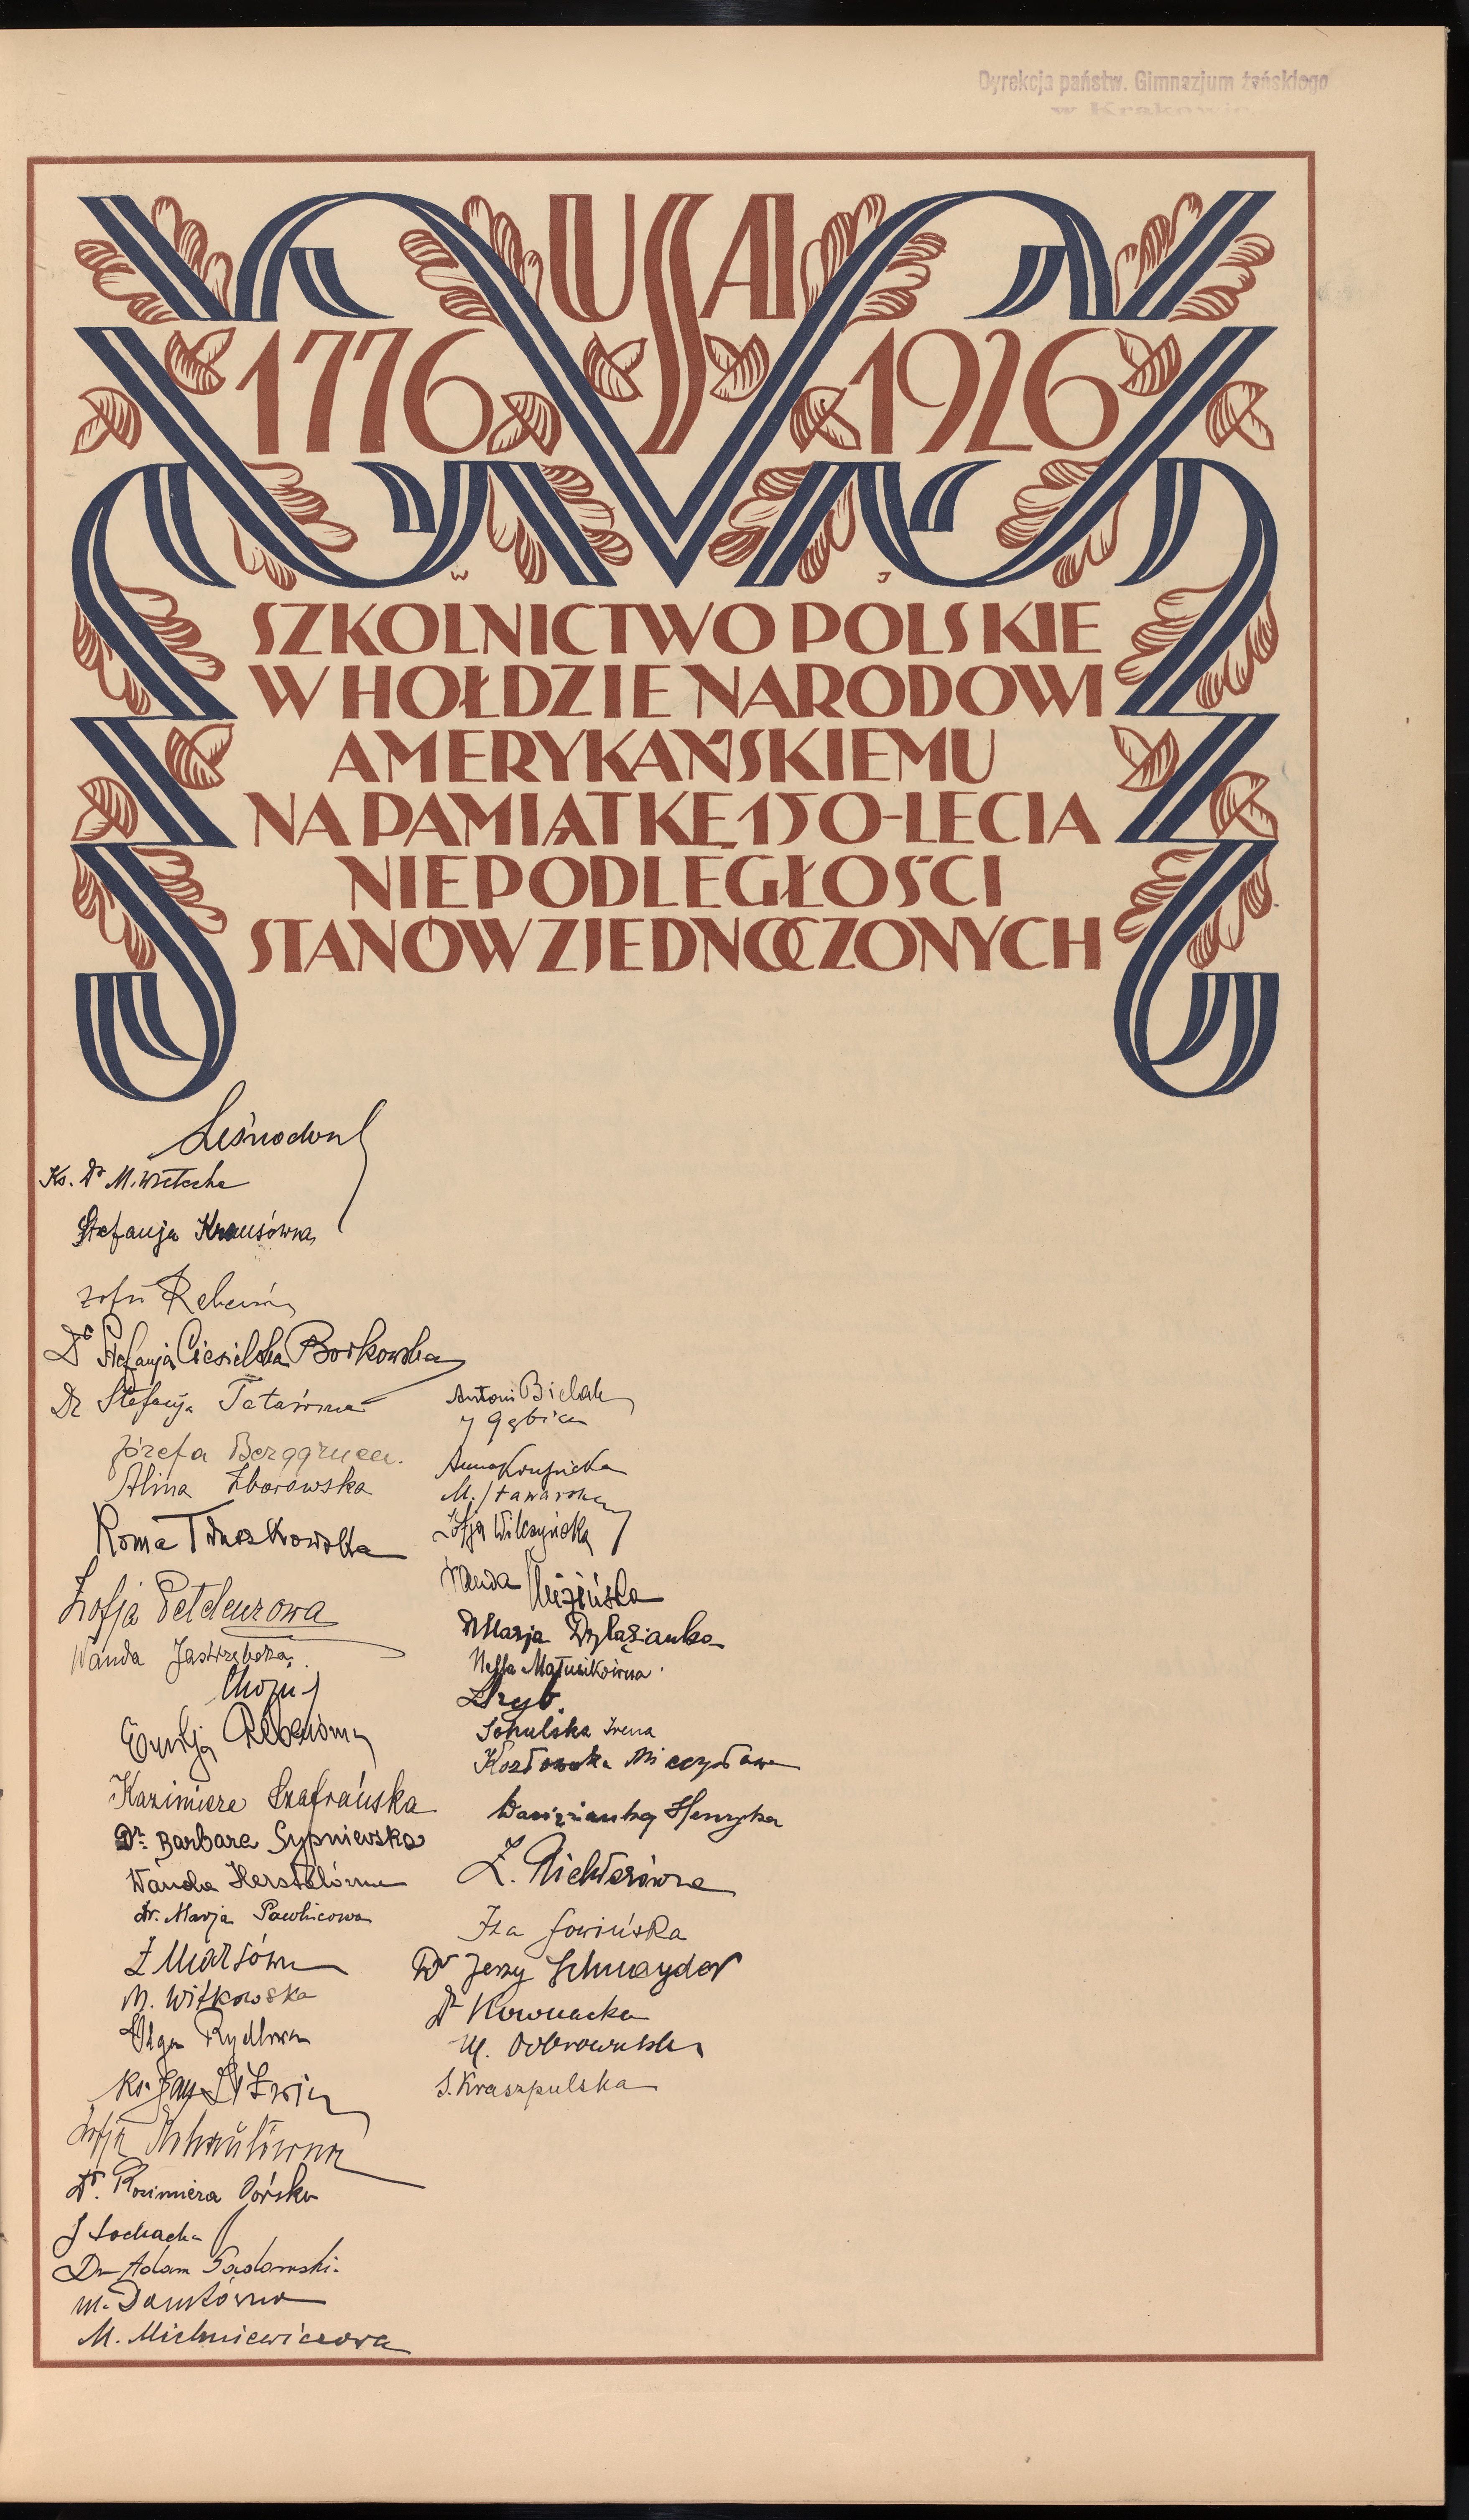 Dyrekcja państw. Gimnazjum żeńskiego
w Krakowie
USA
1776 1926
W J
SZKOLNICTWO POLSKIE
W HOŁDZIE NARODOWI
AMERYKAŃSKIEMU
NA PAMIĄTKĘ 150-LECIA
NIEPODLEGŁOŚCI
STANÓW ZJEDNOCZONYCH
Ks. Dr M.
Stefanja Krausówna
Dr Stefanja Ciesielska Borkowska
Dr Stefanja Tatarówna
Józefa Berggruen.
Alina Zborowska
Roma
Zofja Petelenzowa
Wanda Jastrzębska
Emilja Rebenówna
Kazimiera Szafrańska
Dr. Barbara Sypniewska
Wanda
dr. Marja Pawlicowa
M. Witkowska
Olga Rydlowa
Ks. Jan Litwin
Zofja
Dr. Kazimiera Górska
J Łochacka
Dr Adam Sadowski.
M. Dantówna
M. Michniewiczowa
Antoni Bielak
J Gębica
Anna Krupicka
M. Stawarska
Zofja Wilczyńska
Wanda
Marja Dylążanka
Nella Matusikówna
Sokulska Irena
Kozłowska Mieczysława
Henryka
Z. Richterówna
Iza Łowińska
Dr Jerzy Schnayder
Dr Kownacka
M. Dobrowolska
S. Kraszpulska